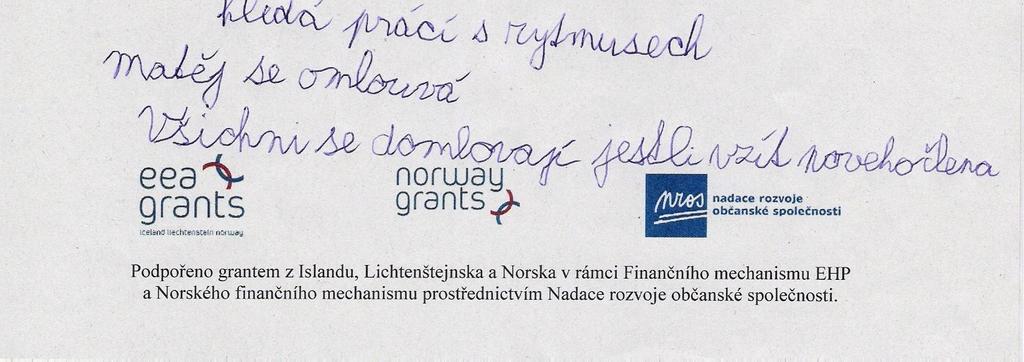 hledá prácí s rytmusech
Matěj se omlouvá
Všichni se domlovají jestli vzít noveho člena
eea grants
iceland liechtenstein norway
norway grants
nros
nadace rozvoje občanské společnosti
Podpořeno grantem z Islandu, Lichtenštejnska a Norska v rámci Finančního mechanismu EHP
a Norského finančního mechanismu prostřednictvím Nadace rozvoje občanské společnosti.